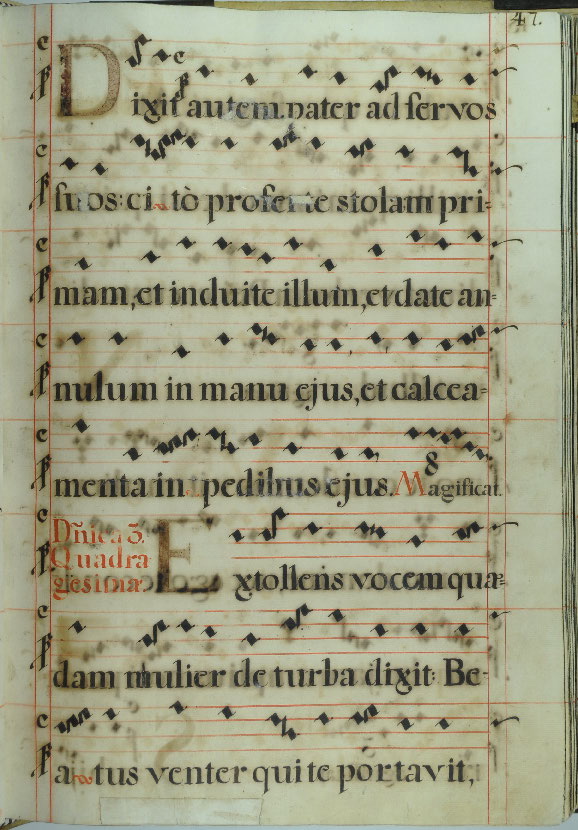 47.
Dixit autem pater ad servos
suos: ci tò proferte stolam pri-
mam, et induite illum, et date an-
nulum in manu ejus, et calcea-
menta in pedibus ejus. Magnificat.
8
Dñica 3.
Quadra
gesima.
Extollens vocem quæ-
dam mulier de turba dixit: Be-
a tus venter qui te portavit,